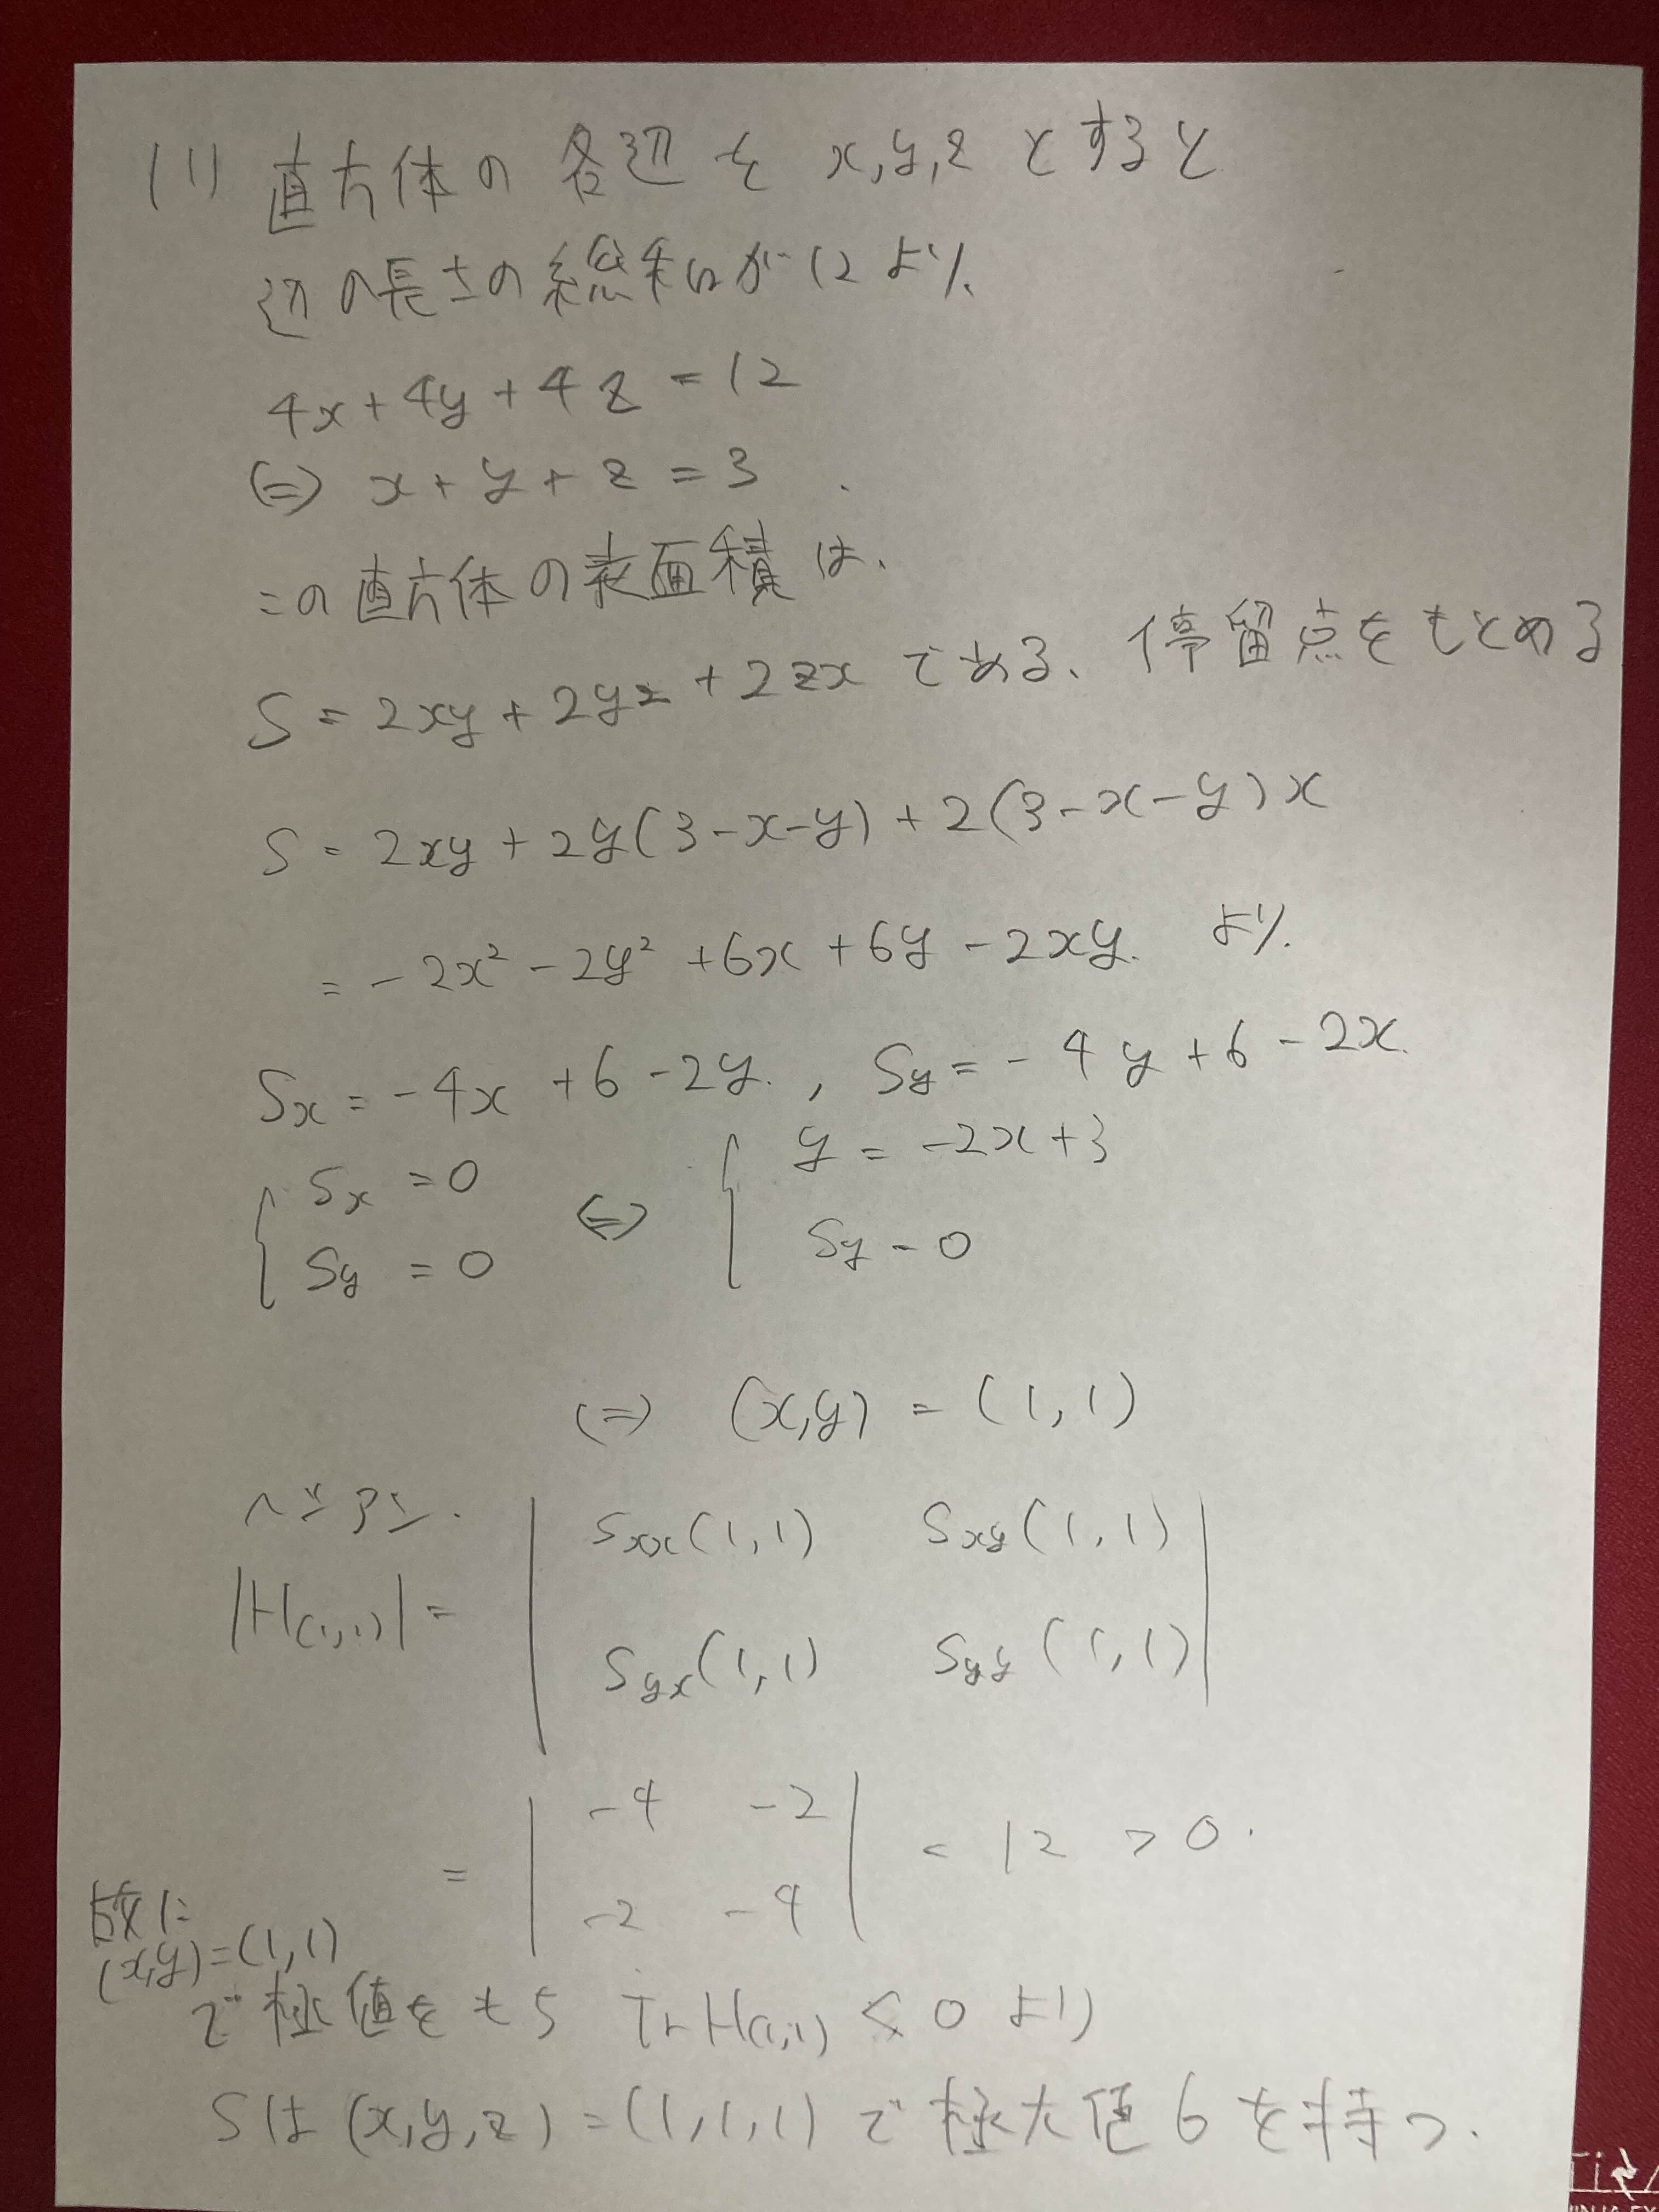 (1) 直方体の各辺を x,y,z とすると
辺の長さの総和が12より、
4x+4y+4z=12
⇔ x+y+z=3
この直方体の表面積は、
S=2xy+2yz+2zx である、停留点をもとめる
S=2xy+2y(3-x-y)+2(3-x-y)x
=-2x²-2y²+6x+6y-2xy. より、
Sx=-4x+6-2y. , Sy=-4y+6-2x.
{ Sx=0 ⇔ { y=-2x+3
Sy=0 Sy=0
⇔ (x,y)=(1,1)
ヘシアン.
|H(1,1)|= | Sxx(1,1) Sxy(1,1) |
| Syx(1,1) Syy(1,1) |
= | -4 -2 | = 12 > 0.
| -2 -4 |
故に
(x,y)=(1,1)
で極値をもち Tr H(1,1) < 0 より
Sは (x,y,z)=(1,1,1) で極大値6を持つ.